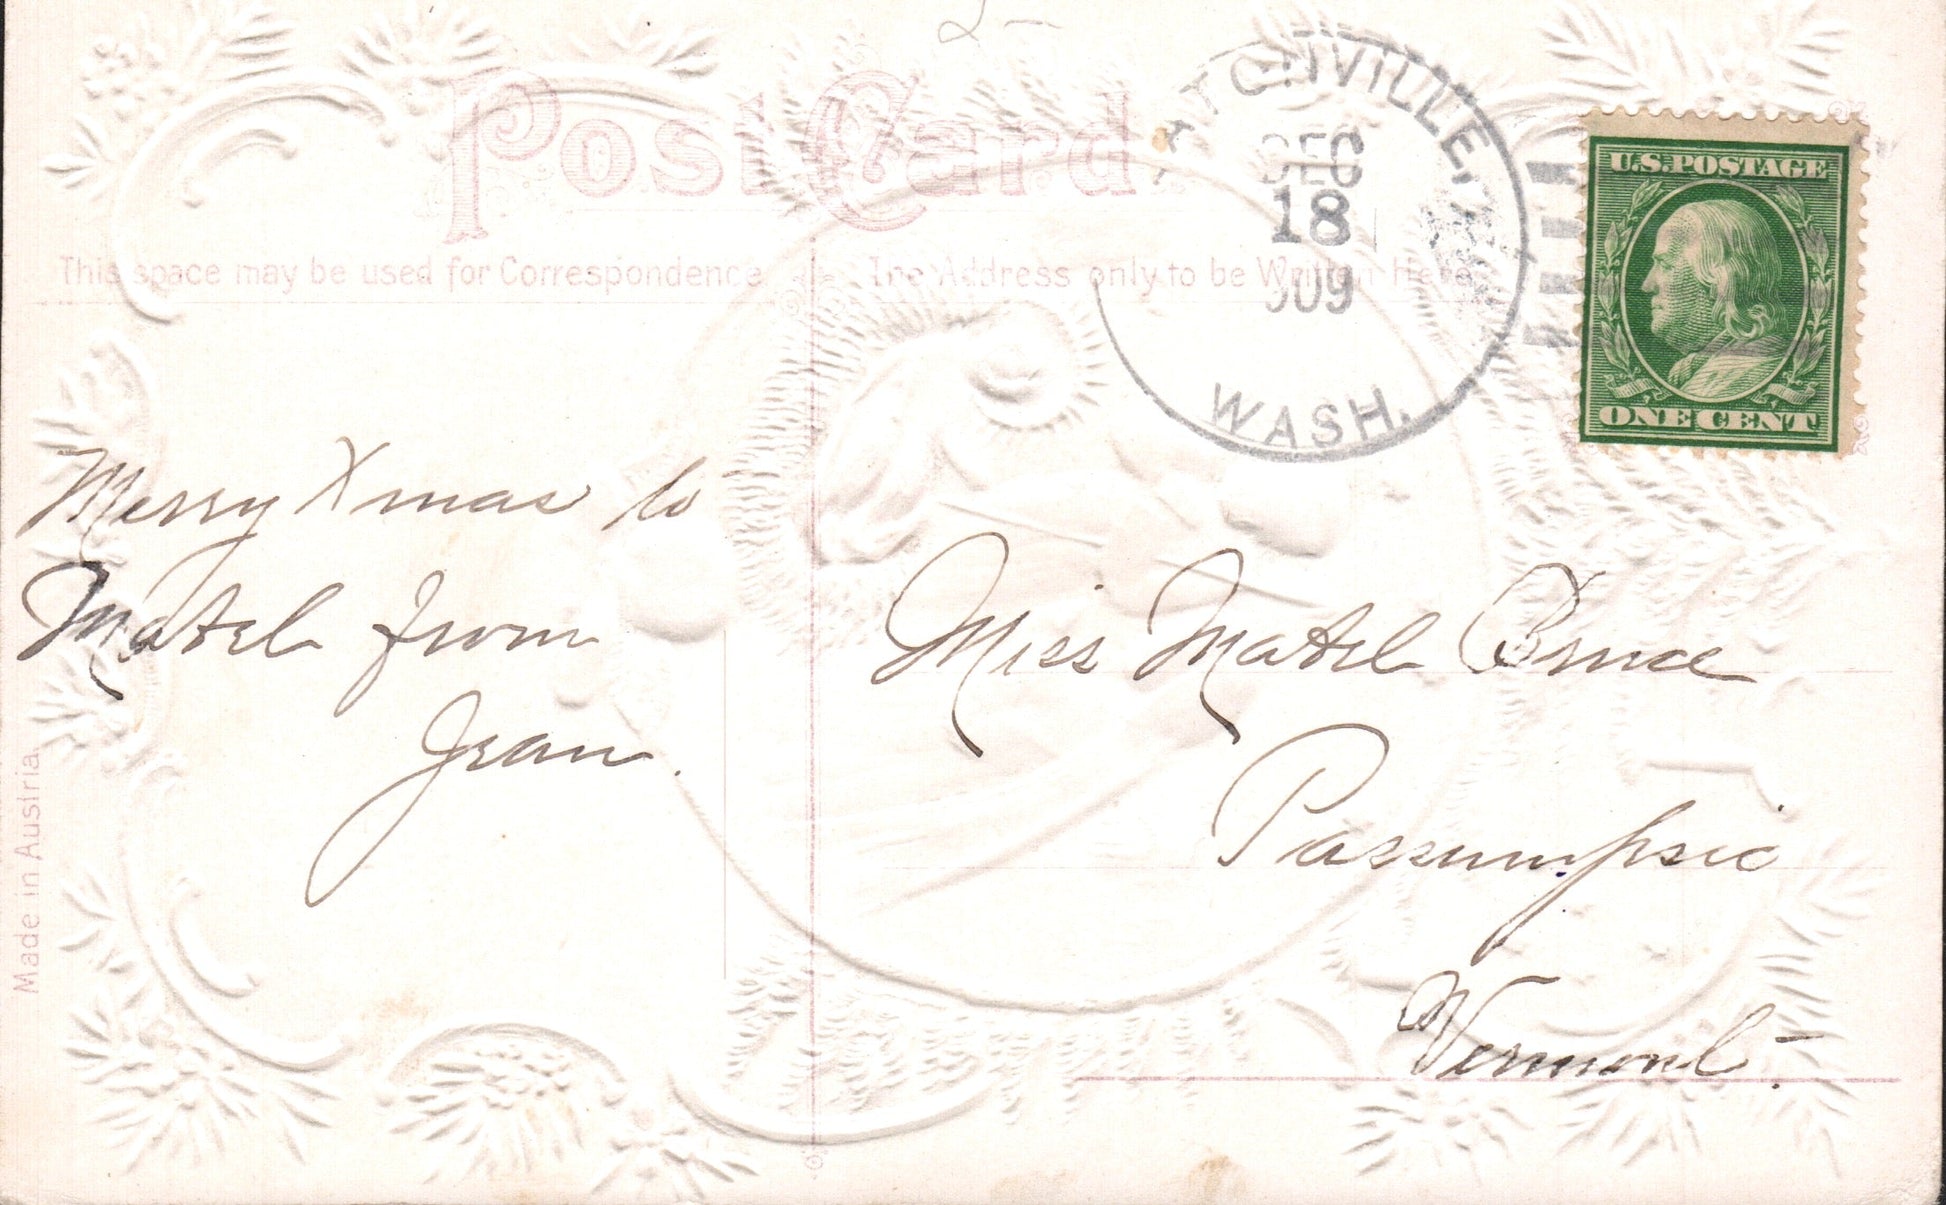 2-
Post Card
This space may be used for Correspondence
The Address only to be Written Here
ATCHVILLE,
DEC
18
909
WASH.
U.S. POSTAGE
ONE CENT
Merry Xmas to
Matel from
Jean.
Miss Matel Bruce
Passumpsic
Vermont.
Made in Austria